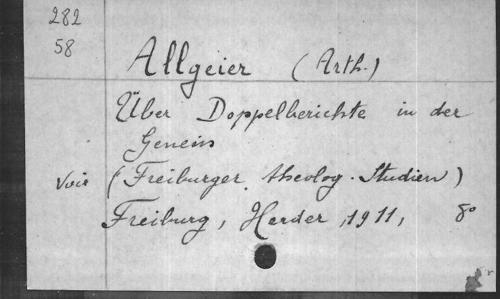 282
58
Allgeier (Arth.)
Über Doppelberichte in der
Genesis
Voir (Freiburger theolog. Studien)
Freiburg, Herder, 1911, 8o